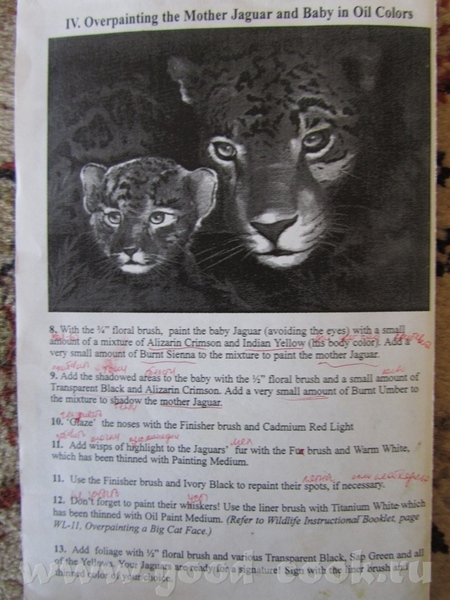 IV. Overpainting the Mother Jaguar and Baby in Oil Colors
8. With the ¾" floral brush, paint the baby Jaguar (avoiding the eyes) with a small
amount of a mixture of Alizarin Crimson and Indian Yellow (his body color). Add a
very small amount of Burnt Sienna to the mixture to paint the mother Jaguar.
9. Add the shadowed areas to the baby with the ½" floral brush and a small amount of
Transparent Black and Alizarin Crimson. Add a very small amount of Burnt Umber to
the mixture to shadow the mother Jaguar.
10. 'Glaze' the noses with the Finisher brush and Cadmium Red Light
11. Add wisps of highlight to the Jaguars' fur with the Fox brush and Warm White,
which has been thinned with Painting Medium.
11. Use the Finisher brush and Ivory Black to repaint their spots, if necessary.
12. Don't forget to paint their whiskers! Use the liner brush with Titanium White which
has been thinned with Oil Paint Medium. (Refer to Wildlife Instructional Booklet, page
WL-11, Overpainting a Big Cat Face.)
13. Add foliage with ½" floral brush and various Transparent Black, Sap Green and all
of the Yellows. Your Jaguars are ready for a signature! Sign with the liner brush and
thinned color of your choice.